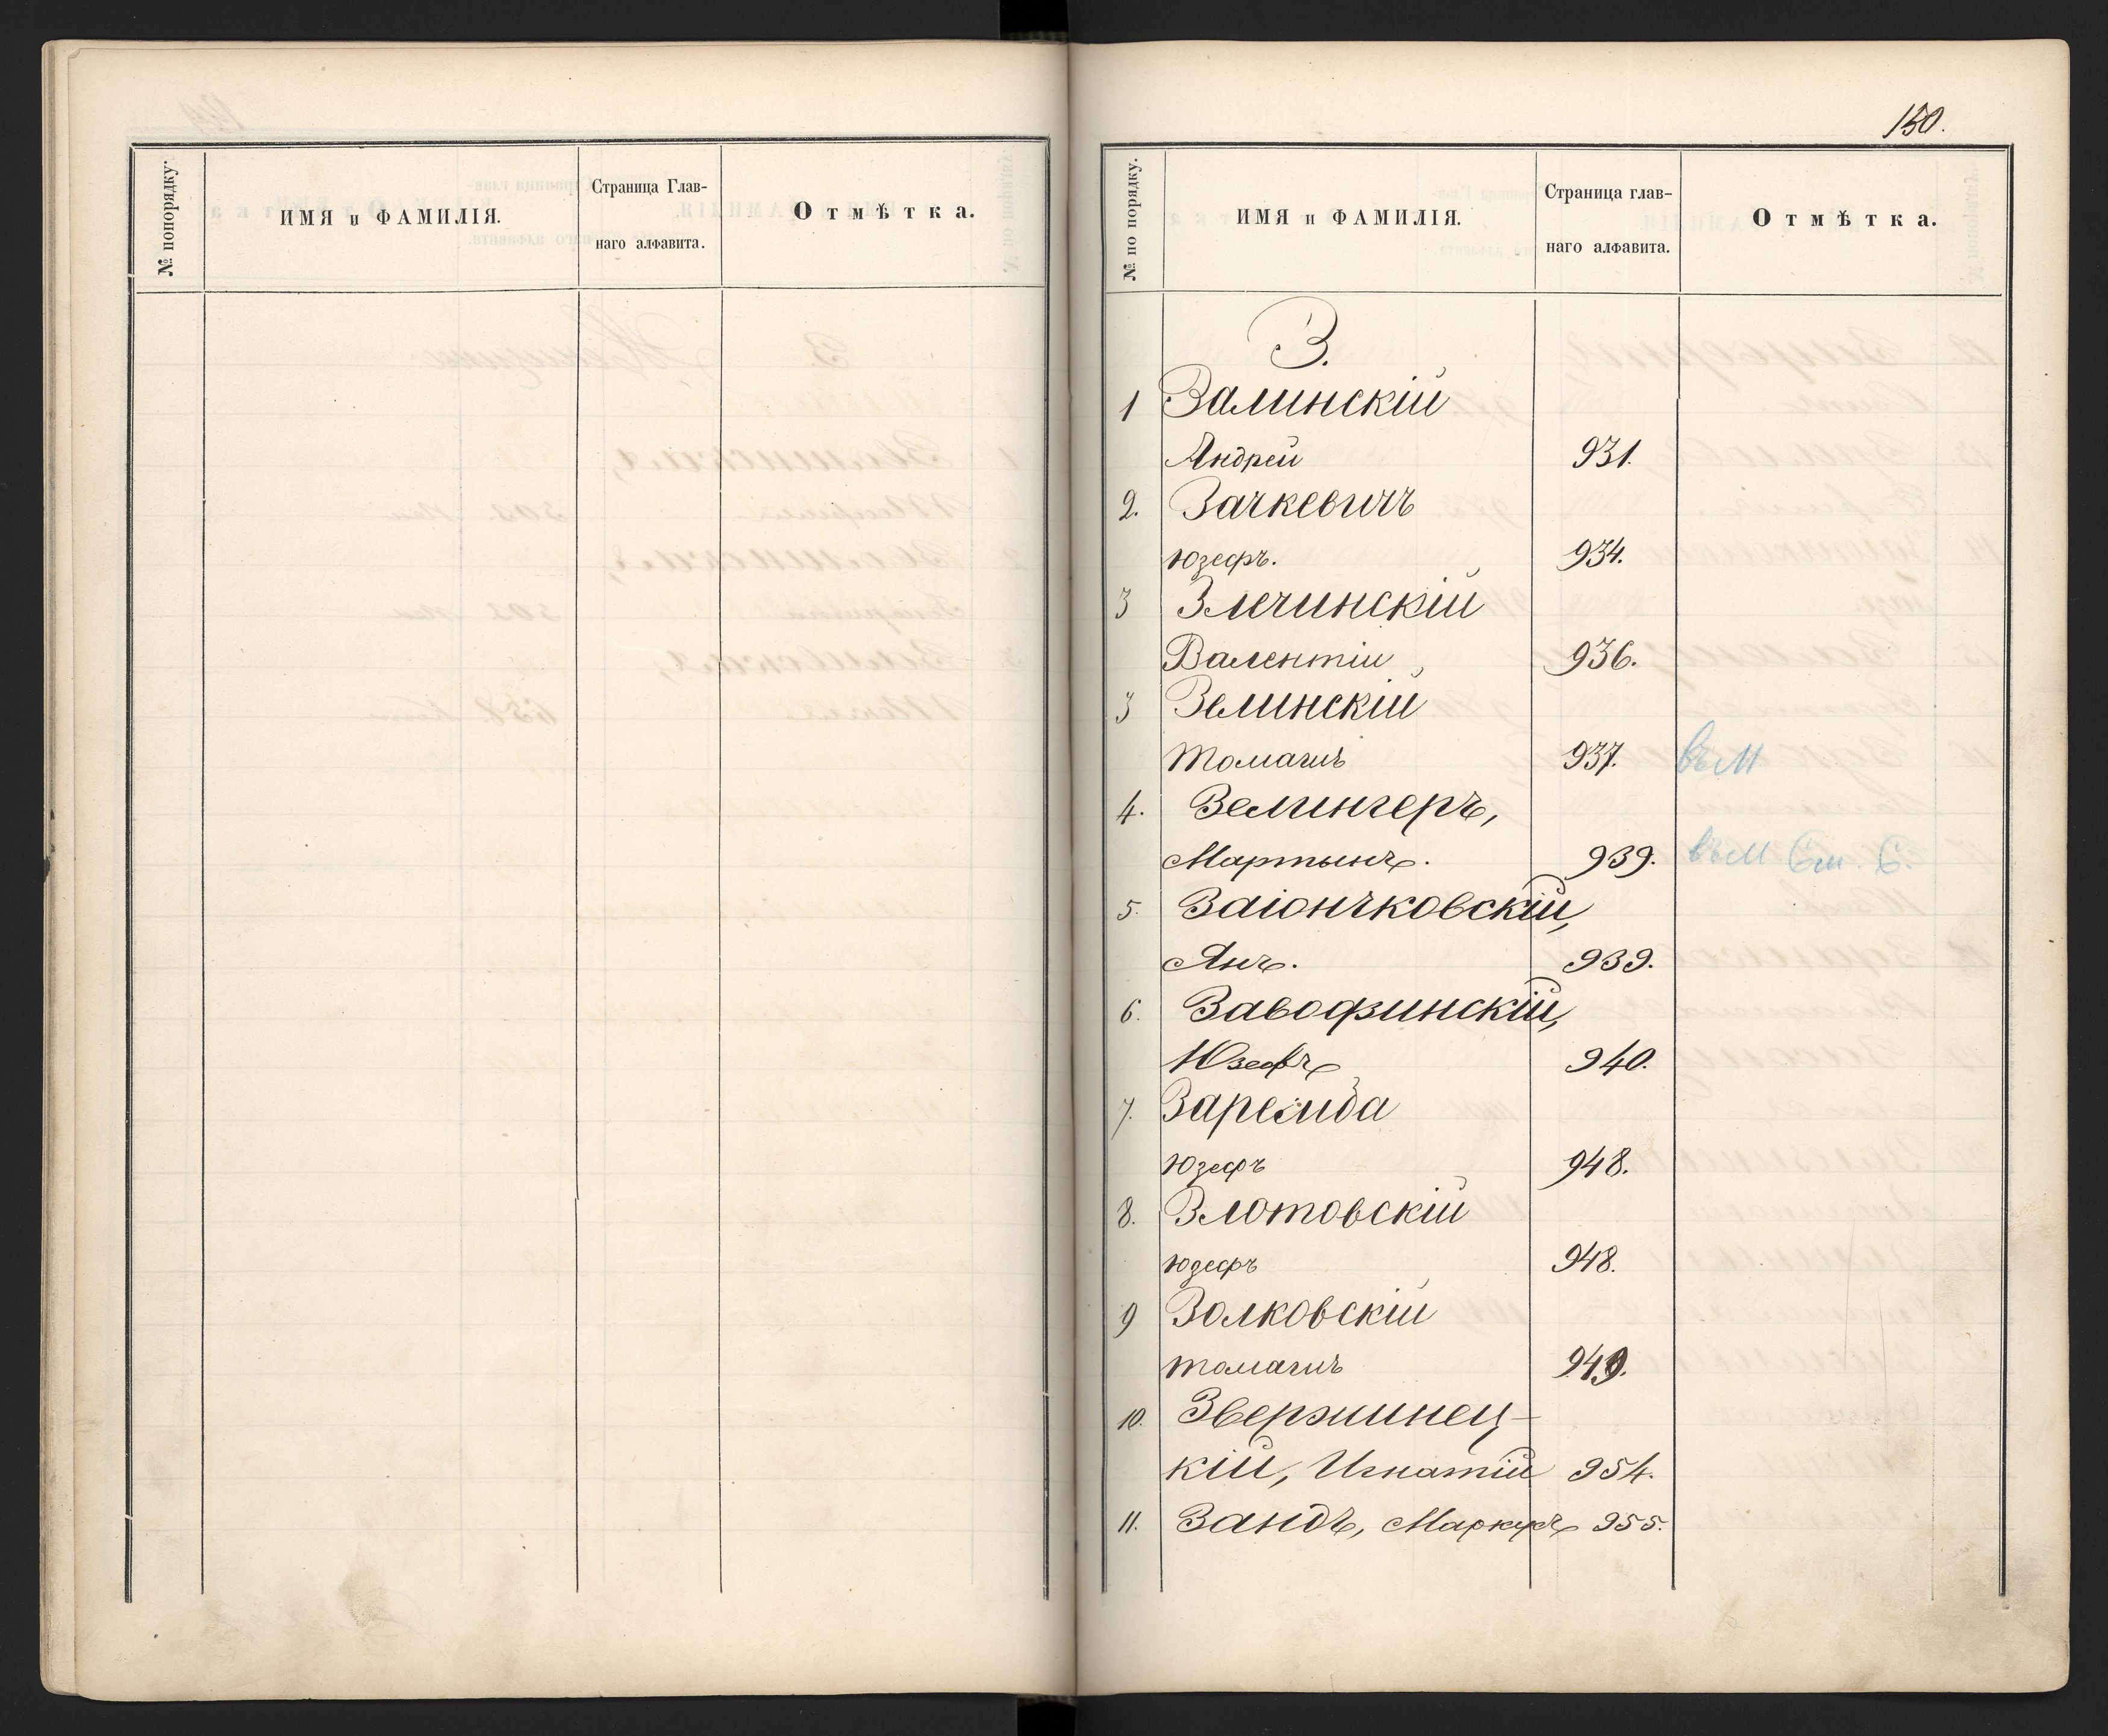 № попорядку.
ИМЯ и ФАМИЛІЯ.
Страница Глав-
наго алфавита.
Отмѣтка.
150.
№ по порядку.
ИМЯ и ФАМИЛІЯ.
Страница глав-
наго алфавита.
Отмѣтка.
З.
1 Залинскій
Андрей 931.
2. Зачкевичъ
Юзефъ. 934.
3 Злечинскій
Валентій 936.
3 Зелинскій
Томашъ 937. въ М
4. Зелингеръ,
Мартынъ. 939. въ М См. С.
5. Заіончковскій,
Янъ. 939.
6. Заводзинскій,
Юзефъ 940.
7. Заремба
Юзефъ 948.
8. Злотовскій
Юзефъ 948.
9 Золковскій
Томашъ 949.
10. Звержинец-
кій, Игнатій 954.
11. Зандъ, Маркусъ 955.